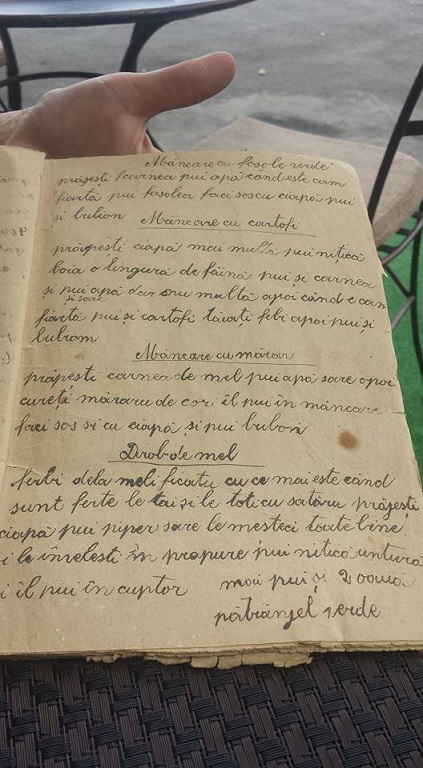 Mâncare cu fasole verde
prăjești carnea pui apă când este cam
fiartă pui fasolea faci sos cu ciapă pui
si bulion Mâncare cu cartofi
prăjești ciapă mai multă pui nițică
boia o lingură de făină pui și carnea
și pui apă dar nu multă apoi când e cam
și sare
fiartă pui și cartofi tăiati felii apoi pui și
bulion
Mâncare cu mărar
prăjești carnea de mel pui apă sare apoi
cureți măraru de cori îl pui în mâncare
faci sos si cu ciapă și pui bulion
Drob de mel
ferbi dela meli ficatu cu ce mai este când
sunt ferte le tai și le toci cu satăru prăjești
ciapă pui piper sare le mesteci toate bine
i le învelești în prapure pui nitică untură
i îl pui în cuptor mai pui și 2 ouuă
pătrânjel verde